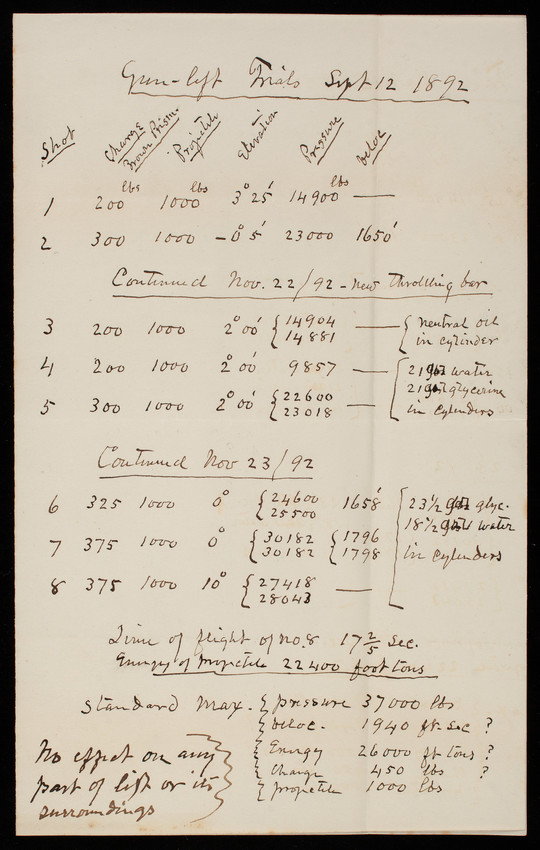 Gun-lift Trials Sept 12 1892
Shot Charge Brown Prism. Projectile Elevation Pressure Veloc
1 200 lbs 1000 lbs 3° 25' 14900 lbs —
2 300 1000 -0° 5' 23000 1650'
Continued Nov. 22/92 - new throttling bar
3 200 1000 2° 00' { 14904 — { neutral oil
14881 in cylinder
4 200 1000 2° 00' 9857 — 21 water
21 glycerine
5 300 1000 2° 00' { 22600 — in cylinders
23018
Continued Nov 23/92
6 325 1000 0° { 24600 1658' 23 1/2 glyc.
25500 18 1/2 water
7 375 1000 0° { 30182 { 1796 in cylinders
30182 1798
8 375 1000 10° { 27418 —
28043
Time of flight of no. 8 17 2/5 sec.
Energy of projectile 22400 foot tons
Standard max. { pressure 37000 lbs
{ veloc. 1940 ft. sec ?
{ Energy 26000 ft tons ?
{ Charge 450 lbs ?
{ projectile 1000 lbs
No effect on any
part of lift or its
surroundings